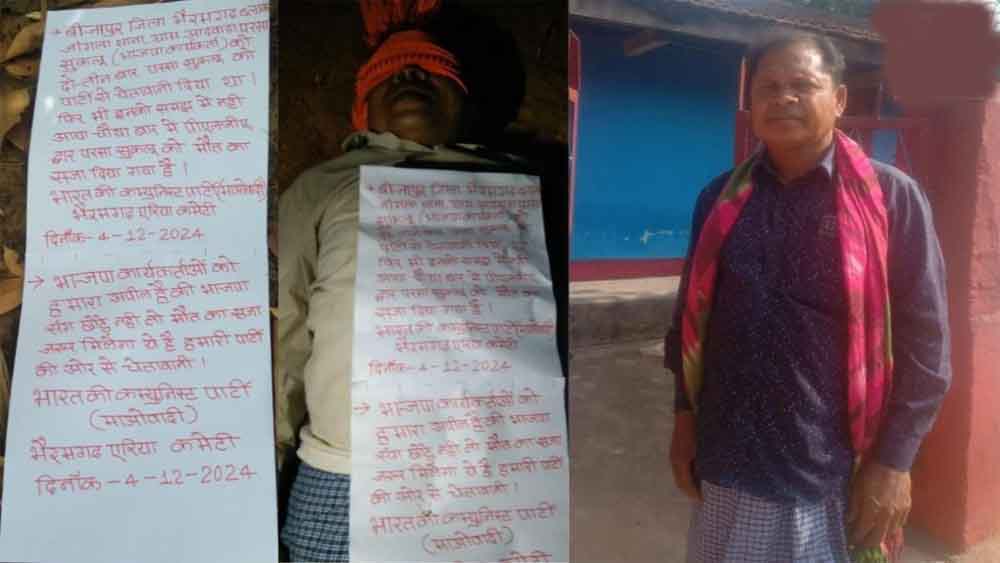 * बीजापुर जिला भैरमगढ़ ब्लाक
जांगला थाना ग्राम आदवाड़ा परसा
सुकलू (भाजपा कार्यकर्ता) को
दो-तीन बार परसा सुकलू को
पार्टी से चेतावनी दिया था।
फिर भी इनको समझ में नही
आया-चौथा बार में पीएलजीए
द्वार परसा सुकलू को मौत का
सजा दिया गया है।
भारत की कम्युनिस्ट पार्टी (माओवादी)
भैरमगढ एरिया कमेटी
दिनाँक-4-12-2024
→ भाजपा कार्यकर्ताओं को
हमारा अपील है की भाजपा
संग छोडू नही तो मौत का सजा
जरूर मिलेगा ये है हमारी पार्टी
की ओर से चेतावानी।
भारत की कम्युनिस्ट पार्टी
(माओवादी)
भैरमगढ एरिया कमेटी
दिनाँक-4-12-2024
* बीजापुर जिला भैरमगढ़
जांगला थाना ग्राम
सुकलू (भाजपा कार्यकर्ता) को
दो-तीन बार परसा सुकलू को
पार्टी से चेतावनी दिया था।
फिर भी इनको समझ में नही
आया-चौथा बार में पीएलजीए
द्वार परसा सुकलू को मौत का
सजा दिया गया है।
भारत की कम्युनिस्ट पार्टी (माओवादी)
भैरमगढ एरिया कमेटी
दिनाँक-4-12-2024
→ भाजपा कार्यकर्ताओं को
हमारा अपील है की भाजपा
संग छोडू नही तो मौत का सजा
जरूर मिलेगा ये है हमारी पार्टी
की ओर से चेतावानी।
भारत की कम्युनिस्ट पार्टी
(माओवादी)
कमेटी